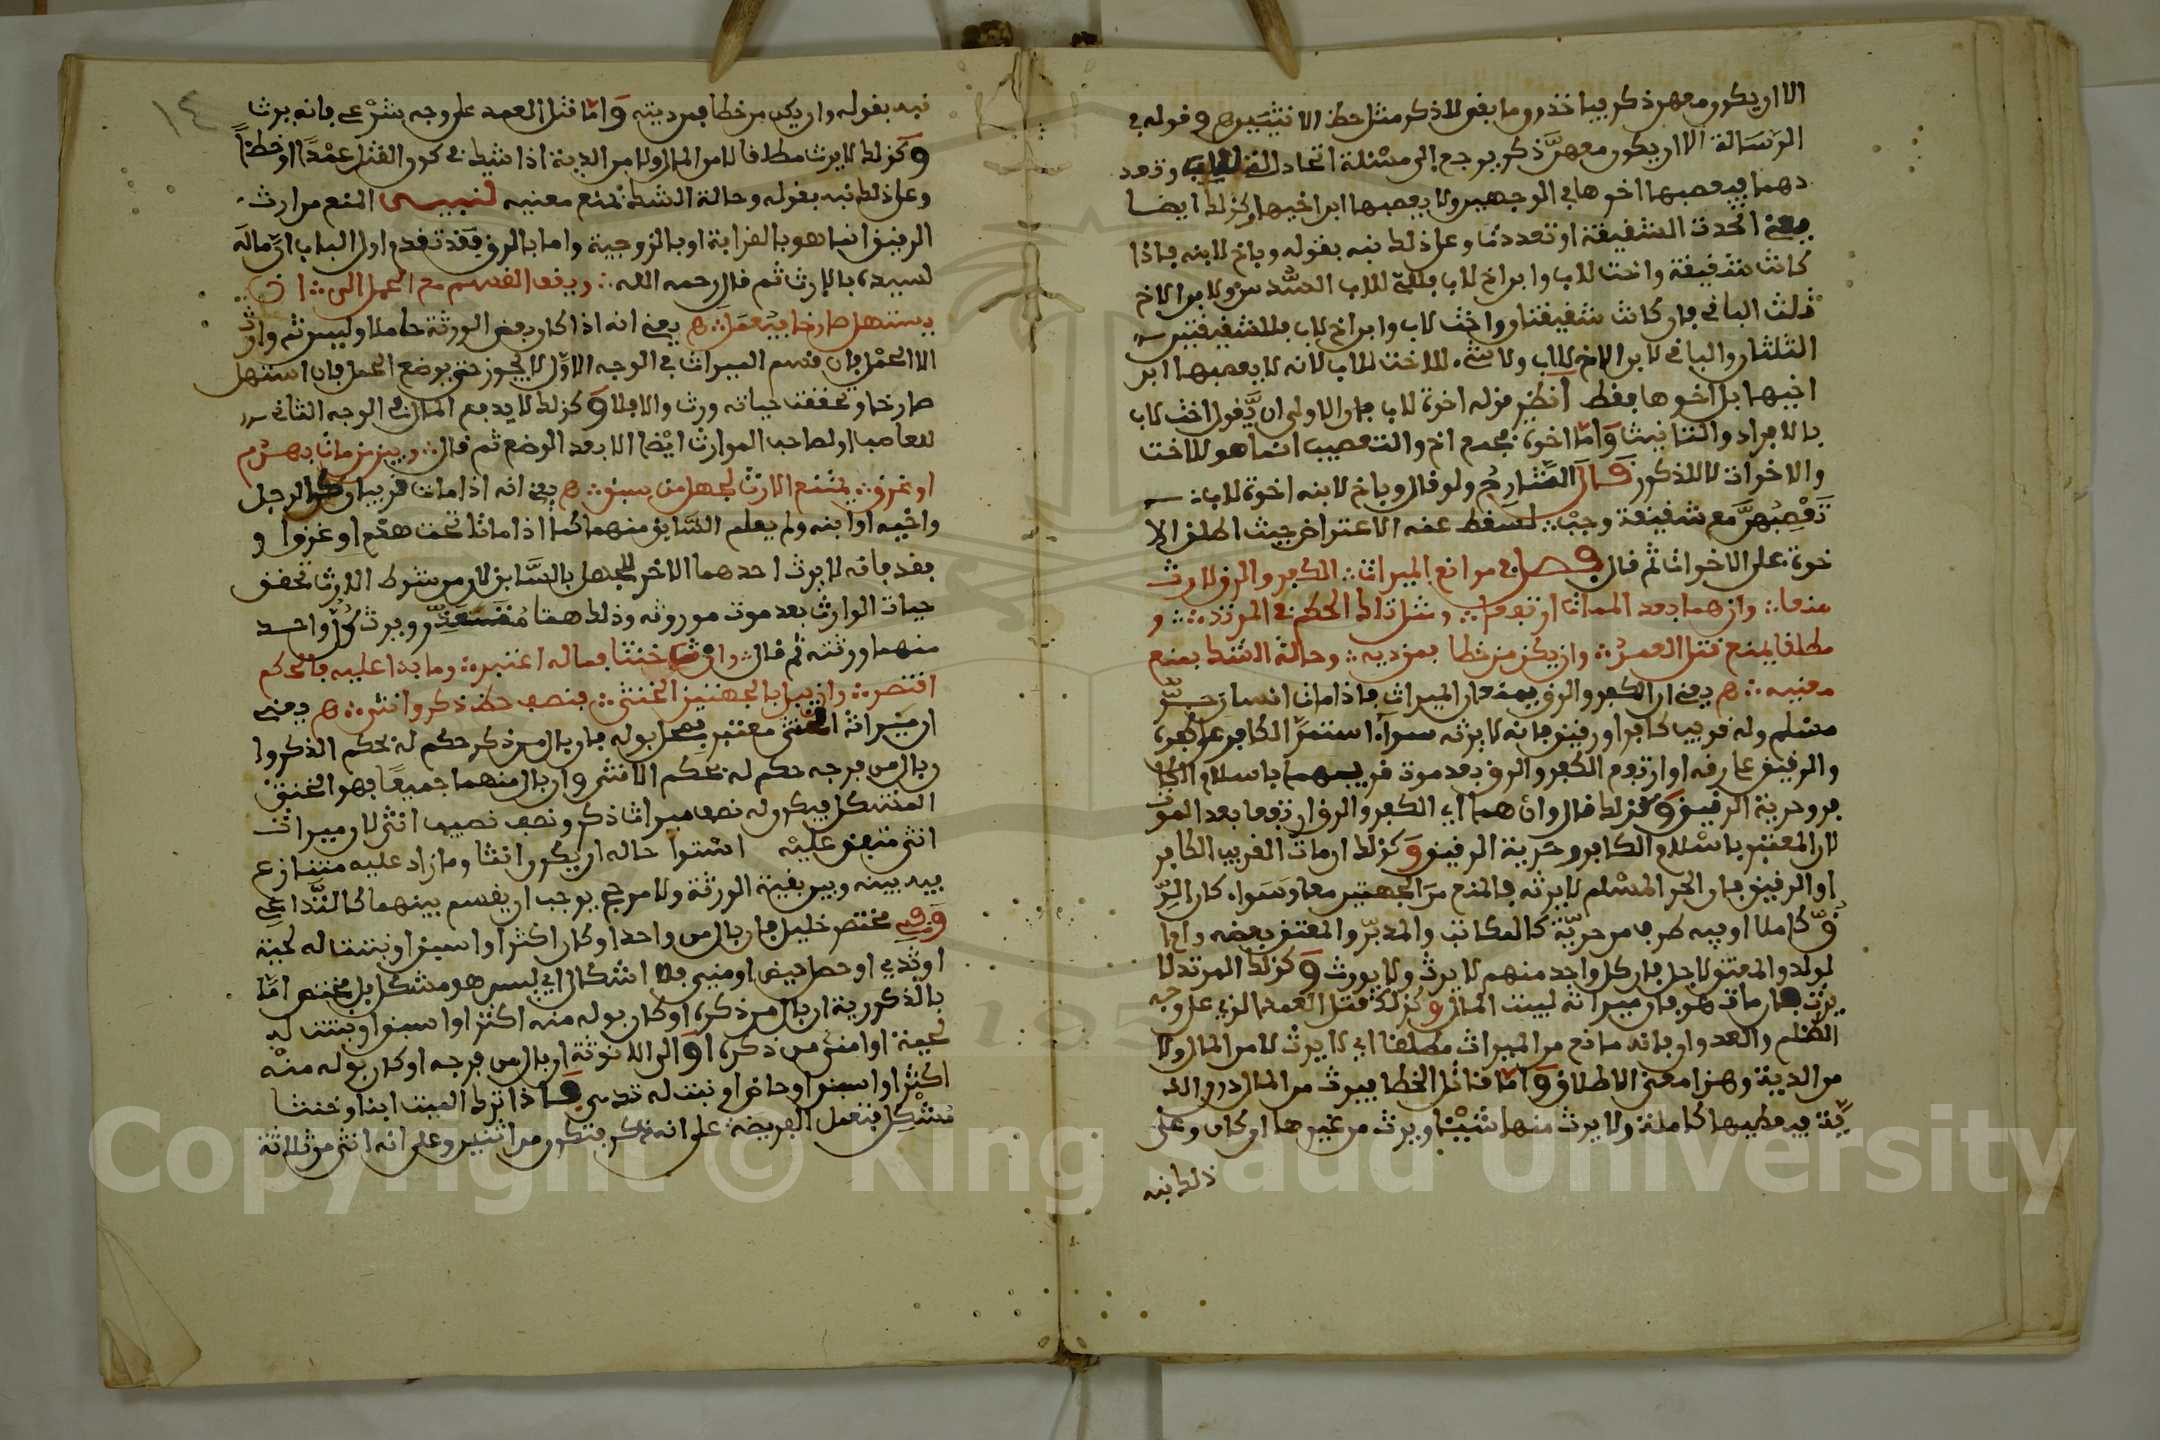 الا ان يكون معهن ذكر فياخذون ما بقي للذكر مثل حظ الانثيين ه وقوله في
الرسالة الا ان يكون معهن ذكر يرجع الى مسئلة اتحاد التي للاب وتعد
دهما فيعصبها اخوها في الوجهين ولا يعصبها ابن اخيها وكذلك ايضا
اتحدت الشقيقة او تعددت وعلى ذلك نبه بقوله وباخ لابنه فاذا
كانت شقيقة واخت للاب وابن اخ لاب فللتي للاب السدس ولابن الاخ
ثلث الباقي فان كانت شقيقتان واخت لاب وابن اخ لاب فللشقيقتين
الثلثان والباقي لابن الاخ للاب ولا شيء للاخت للاب لانه لا يعصبها ابن
اخيها بل اخوها فقط انظر قوله اخوة لاب فان الاولى ان يقول اخت لاب
بالافراد والتانيث واما اخوة فجمع اخ والتعصيب انما هو للاخت
والاخوات لا للذكور قال الشارح ولو قال وباخ لابنه اخوة للاب
تعصبهن مع شقيقة وجب لسقط عنه الاعتراض حيث اطلق الا
خوة على الاخوات ثم قال فصل في موانع الميراث الكفر والرق للارث
منعا وان هما بعد الممات ارتفعا ومثل ذاك الحكم في المرتد و
مطلقا يمنع قتل العمد وان يكن من خطا فمن دية وحالة الشك بمنع
معنيه ه يعني ان الكفر والرق يمنعان الميراث فاذا مات انسان حر
مسلم وله قريب كافر او رقيق فانه لا يرثه سواء استمر الكافر على كفره
والرقيق على رقه او ارتفع الكفر والرق بعد موت قريبهما باسلام الكا
فر وحرية الرقيق وكذلك قال وان هما اي الكفر والرق ارتفعا بعد الموت
لان المعتبر باسلام الكافر وحرية الرقيق وكذلك ان مات القريب الكافر
او الرقيق فان الحر المسلم لا يرثه فالمنع من الجهتين معا وسواء كان الر
ق كاملا او فيه طرف من حرية كالمكاتب والمدبر والمعتق بعضه وام
لولد والمعتق لاجل فان كل واحد منهم لا يرث ولا يورث وكذلك المرتد لا
يرث فان مات هو فان ميراثه لبيت المال وكذلك قتل العمد الذي على وجه
الظلم والعدوان فانه مانع من الميراث مطلقا اي لا يرث لا من المال ولا
من الدية وهذا معنى الاطلاق واما قاتل الخطا فيرث من المال دون الد
ية فيعطيها كاملة ولا يرث منها شيئا ويرث من غيرها ان كان وعلى
ذلك نبه
١٤
نبه بقوله وان يكن من خطا فمن ديته واما قتل العمد على وجه شرعي فانه يرث
وكذلك لا يرث مطلقا لا من المال ولا من الدية اذا شك في كون القتل عمدا او خطئا
وعلى ذلك نبه بقوله وحالة الشك بمنع معنيه تنبيه المنع من ارث
الرقيق انما هو بالقرابة او بالزوجية واما بالرق فقد تقدم اول الباب ان ماله
لسيده بالارث ثم قال رحمه الله ويقف القسم مع الحمل الى ان
يستهل صارخا فيعمل ه يعني انه اذا كان بعض الورثة حاملا وليس ثم وارث
الا الحمل فان قسم الميراث في الوجه الاول لا يجوز حتى يوضع الحمل فان استهل
صارخا وتحققت حياته ورث والا فلا وكذلك لا يدفع المال في الوجه الثاني
للعاصب او لصاحب الموارث ايضا الا بعد الوضع ثم قال وبين من مات بهدم
او غرق يمتنع الارث لجهل من سبق ه يعني انه اذا مات قريبان كالرجل
واخيه او ابنه ولم يعلم السابق منهما كما اذا ماتا تحت هدم او غرقوا و
فقد فانه لا يرث احدهما الاخر للجهل بالسابق لان من شرط الارث تحقق
حيات الوارث بعد موت موروثه وذلك هنا متعذر ويرث كل واحد
منهما ورثته ثم قال وارث خنثا بماله اعتبره وما بدا عليه فالحكم
اقتصره وان يبل بالجهتين الخنثى فنصف حظ ذكر وانثى ه يعني
ان ميراث الخنثى معتبر بمحل بوله فان بال من ذكر حكم له بحكم الذكر وا
ن بال من فرجه حكم له بحكم الانثى وان بال منهما جميعا فهو الخنثى
المشكل فيكون له نصف ميراث ذكر ونصف نصيب انثى لان ميراث
انثى متفق عليه استوا حاله ان يكون انثا وما زاد عليه متنازع
فيه بينه وبين بقية الورثة ولا مرجح يوجب ان يقسم بينهما كالتداعي
وفي مختصر خليل فان بال من واحد او كان اكثر او اسبق او نبتت له لحية
او ثدي او حصل حيض او مني فلا اشكال اي ليس هو مشكل بل مختص اما
بالذكورية ان بال من ذكره او كان بوله منه اكثر او اسبق او نبتت له
لحية او امنى من ذكره او الى الانوثة ان بال من فرجه او كان بوله منه
اكثر او اسبق او حاض او نبت له ثدي فاذا ترك الميت ابنا وخنثا
مشكل فتعمل الفريضة على انه ذكر فتكون من اثنين وعلى انه انثى من ثلاثة
Copyright © King Saud University